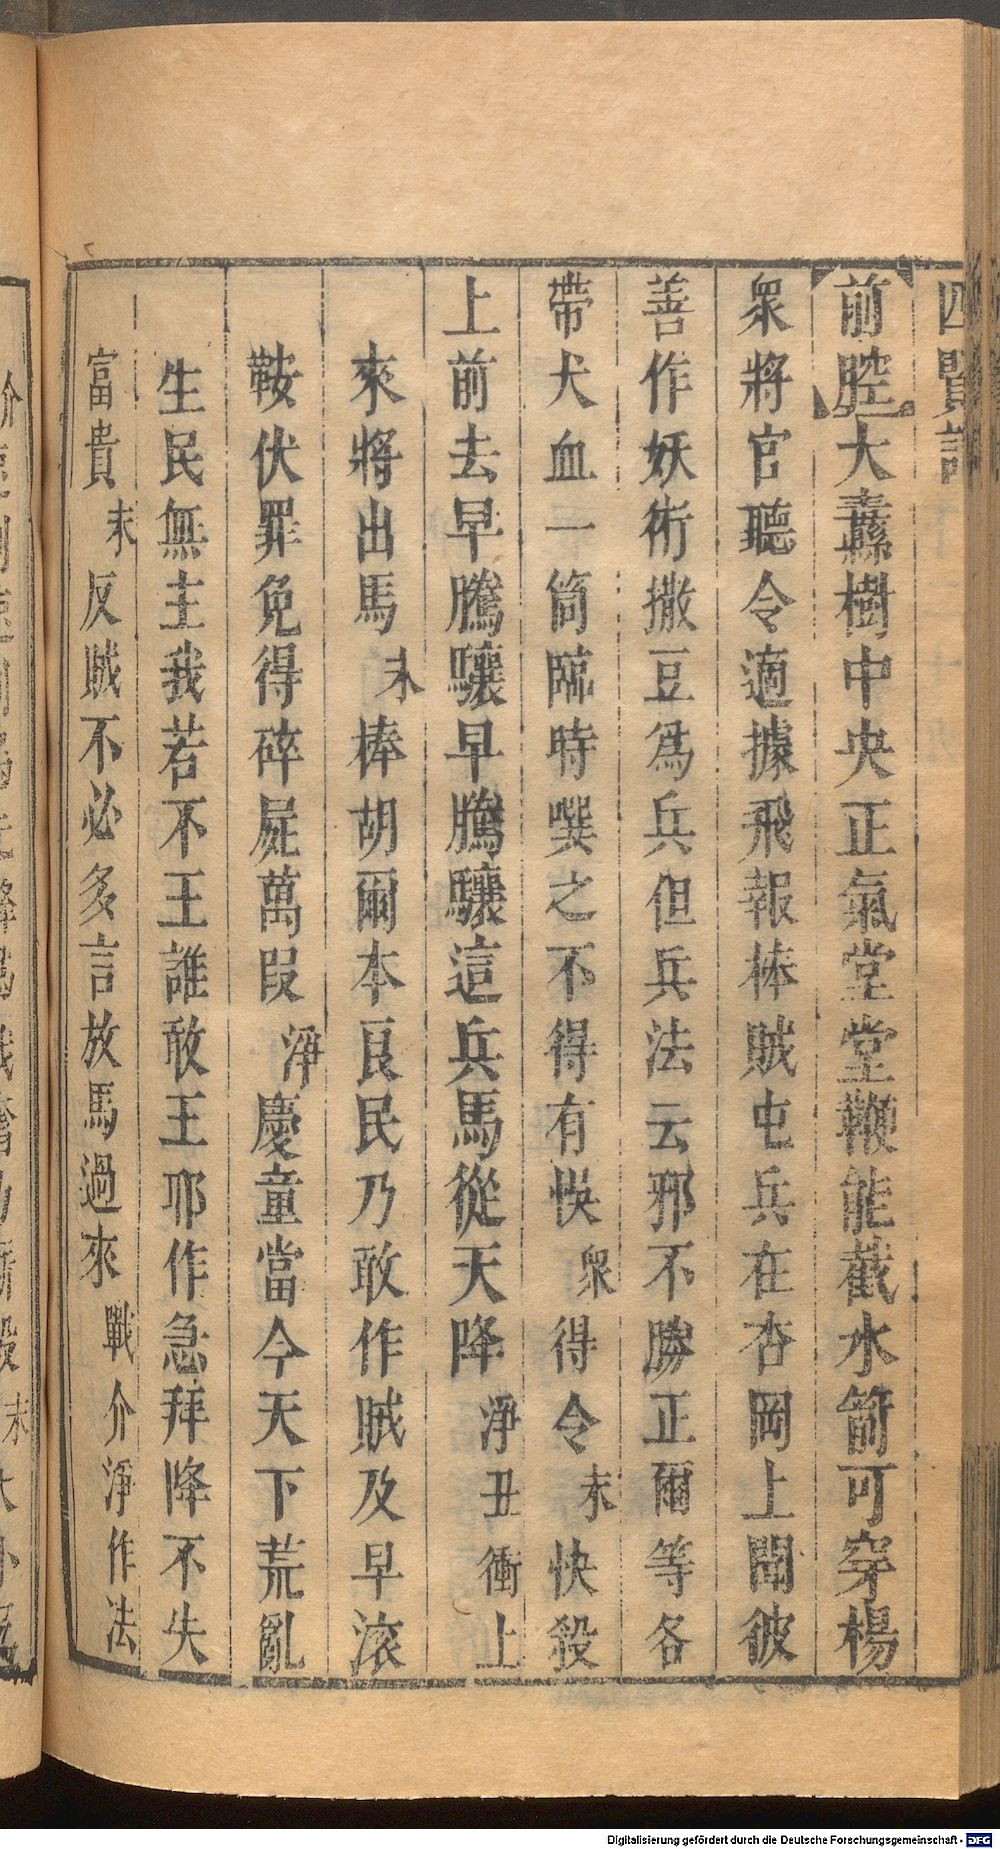 四賢記
前腔大纛樹中央正氣堂堂鞭能截水箭可穿楊
衆將官聽令適據飛報棒賊屯兵在杏岡上聞彼
善作妖術撒豆爲兵但兵法云邪不勝正爾等各
帶犬血一筒臨時噀之不得有悞衆得令末快殺
上前去早騰驤早騰驤這兵馬從天降淨丑衝上
來將出馬末棒胡爾本良民乃敢作賊及早滚
鞍伏罪免得碎屍萬段淨慶童當今天下荒亂
生民無主我若不王誰敢王耶作急拜降不失
富貴末反賊不必多言放馬過來戰介淨作法
Digitalisierung gefördert durch die Deutsche Forschungsgemeinschaft - DFG